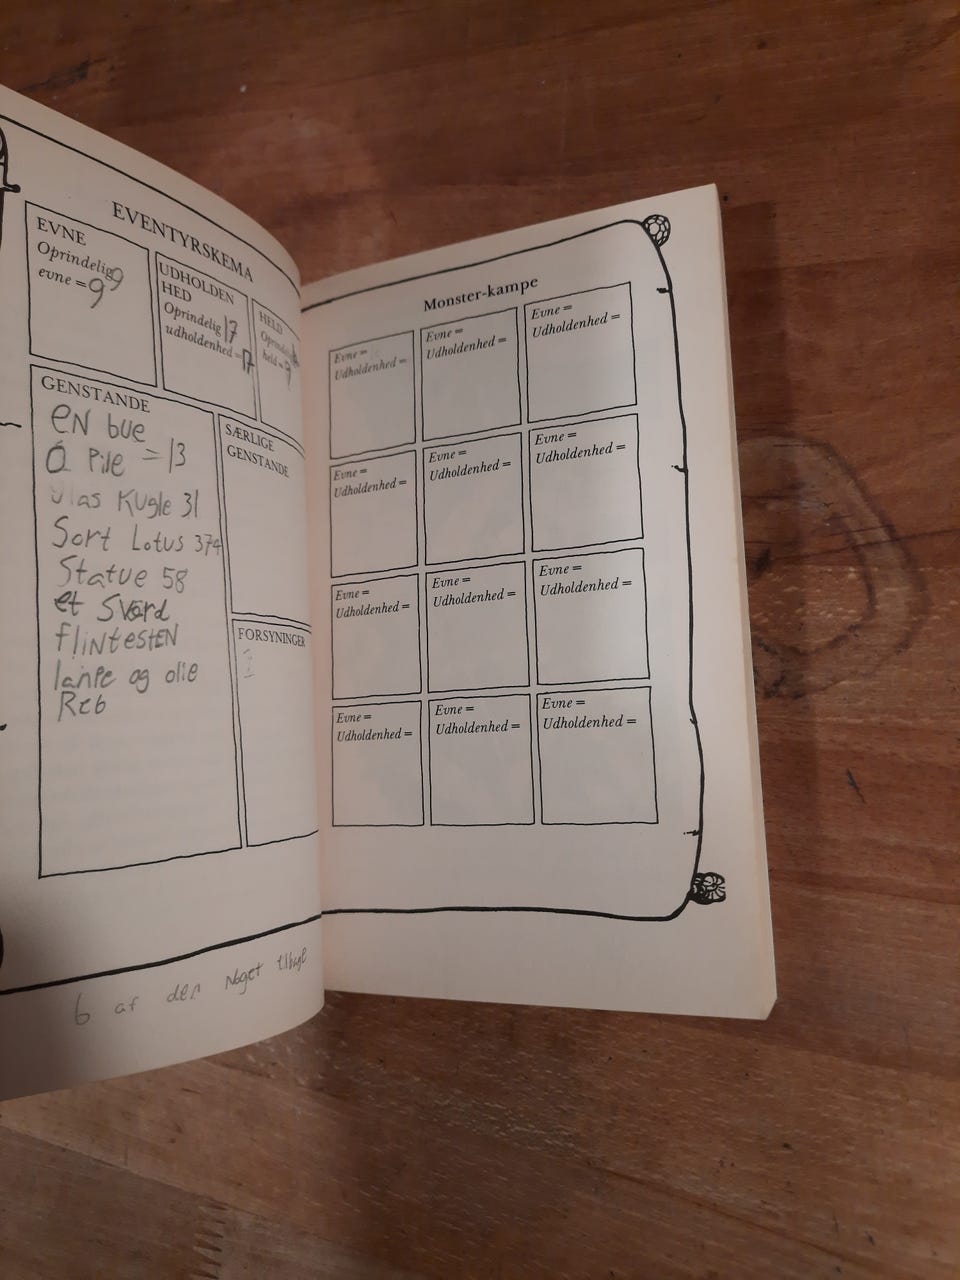 EVENTYRSKEMA
EVNE
Oprindelig 9
evne = 9
UDHOLDEN
HED
Oprindelig 17
udholdenhed = 17
HELD
held = 9
GENSTANDE
EN bue
Pile = 13
Kugle 31
Sort Lotus 374
Statue 58
et Sværd
flintestEN
lampe og olie
Reb
SÆRLIGE
GENSTANDE
FORSYNINGER
6 af den Noget tilbage
Monster-kampe
Evne =
Udholdenhed =
Evne =
Udholdenhed =
Evne =
Udholdenhed =
Evne =
Udholdenhed =
Evne =
Udholdenhed =
Evne =
Udholdenhed =
Evne =
Udholdenhed =
Evne =
Udholdenhed =
Evne =
Udholdenhed =
Evne =
Udholdenhed =
Evne =
Udholdenhed =
Evne =
Udholdenhed =